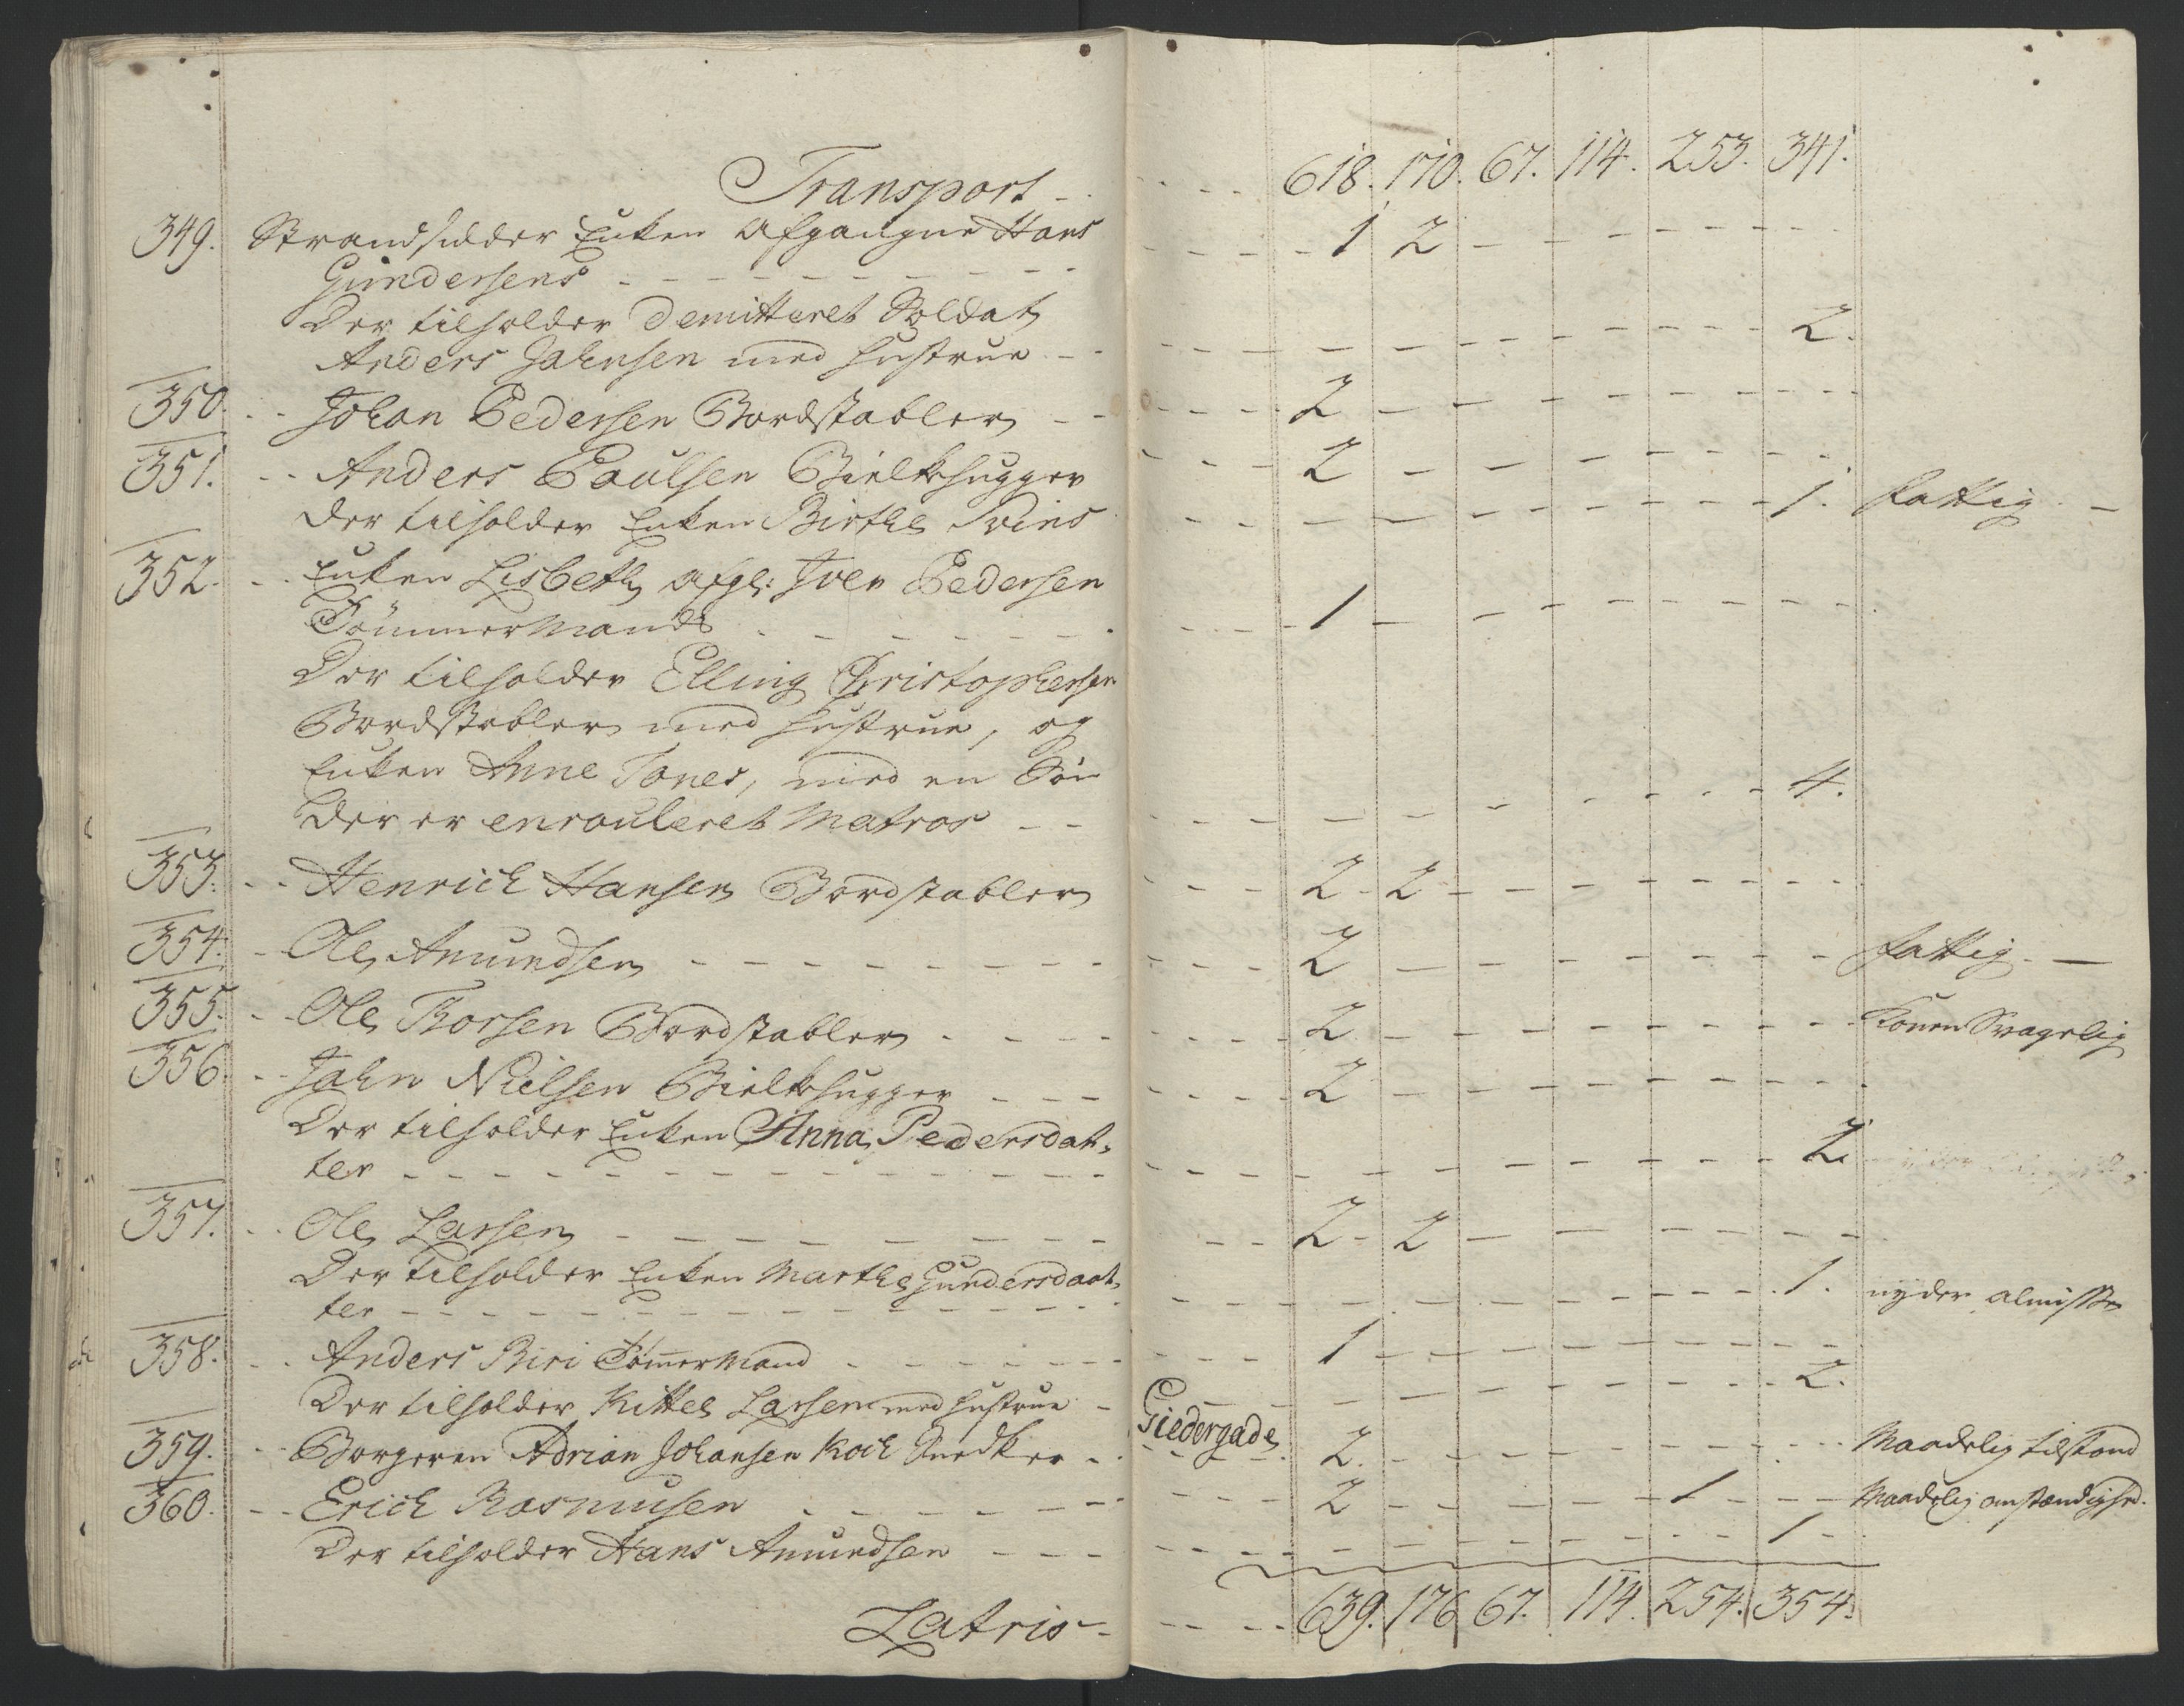 Transport - - - - - 618. 170. 67. 114. 253. 341.
349. Strandsidder Enken Afgangne Hans
Gundersens - - - - 1 2 - - - -
Der tilholder Demitteret Soldat
Anders Jahnsen med Hustrue - - - - 2.
350. - - Johan Pedersen Bordstabler - - - - 2 - - - -
351. - - Anders Paulsen Bielkhugger - - - 2 - - - -
Der tilholder Enken Birthe - - - - 1. fattig. -
352. - - Enken Lisbeth Afgl: Iver Pedersen
Tömmermands - - - - 1 - - - -
Der tilholder Elling Christophersen
Bordstabler med Hustrue, og
Enken Anne Tones, med en Sön
der er enrouleret Matros - - - - 4.
353. - - Henrich Hansen Bordstabler - - - 2 - 2 - - - -
354. - Ole Amundsen - - - - 2 - - - - fattig. -
355. - - Ole Thorsen Bordstabler - - - - 2 - - - - Konen Svagelig
356. - - Jahn Nielsen Bielkhugger - - - - 2 - - - -
Der tilholder Enken Anna Pedersdat-
ter - - - - 2.
357. - - Ole Larsen - - - - 2 - 2 - - - -
Der tilholder Enken Marthe Gundersdaat-
ter - - - - 1. nyder almisse
358. - - Anders Biri Tömmermand - - - - 1 - - - -
Der tilholder Kittel Larsen med Hustrue - - - - 2.
Giedergade
359. - - Borgeren Adrian Johansen Koch Snedker - - 2. - - - - Maadelig tilstand
360. - - Erich Rasmusen - - - - 2 - - - 1 - - Maadelig omstændighed.
Der tilholder Hans Amundsen - - - - 1 -
Latris - - - - - 639. 176 67. 114. 254. 354.